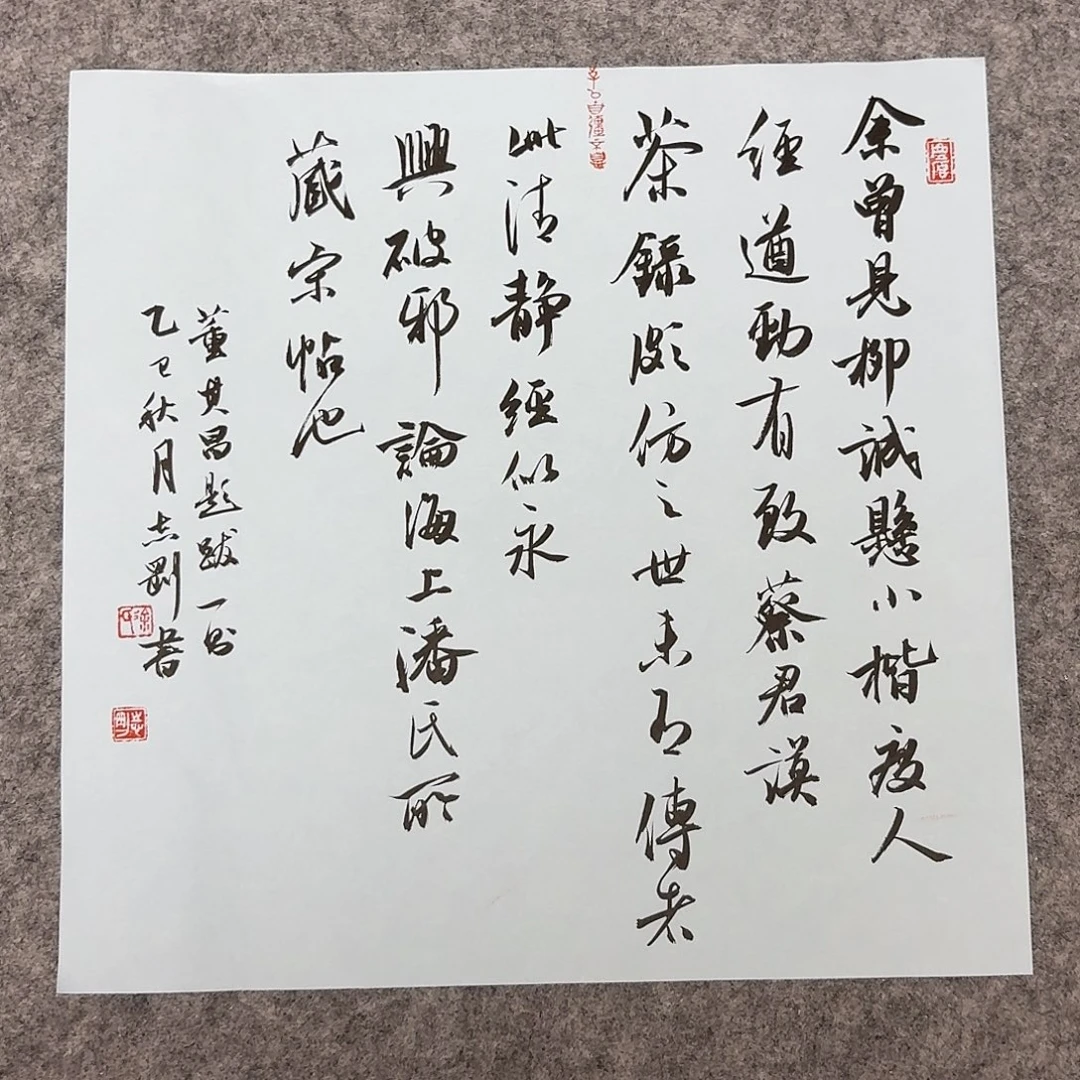 余曾見柳誠懸小楷度人
經遒勁有致蔡君謨
茶錄頗仿之世未有傳者
此清靜經似永
興破邪論海上潘氏所
藏宋帖也
董其昌題跋一則
乙巳秋月志剛書
徐氏
志剛